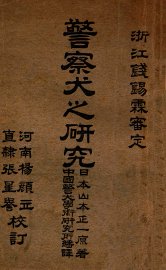 浙江錢錫霖審定
警察犬之研究
日本山本正一原著
中國警犬學術研究所編譯
河南楊顯正
直隸張星奎
校訂